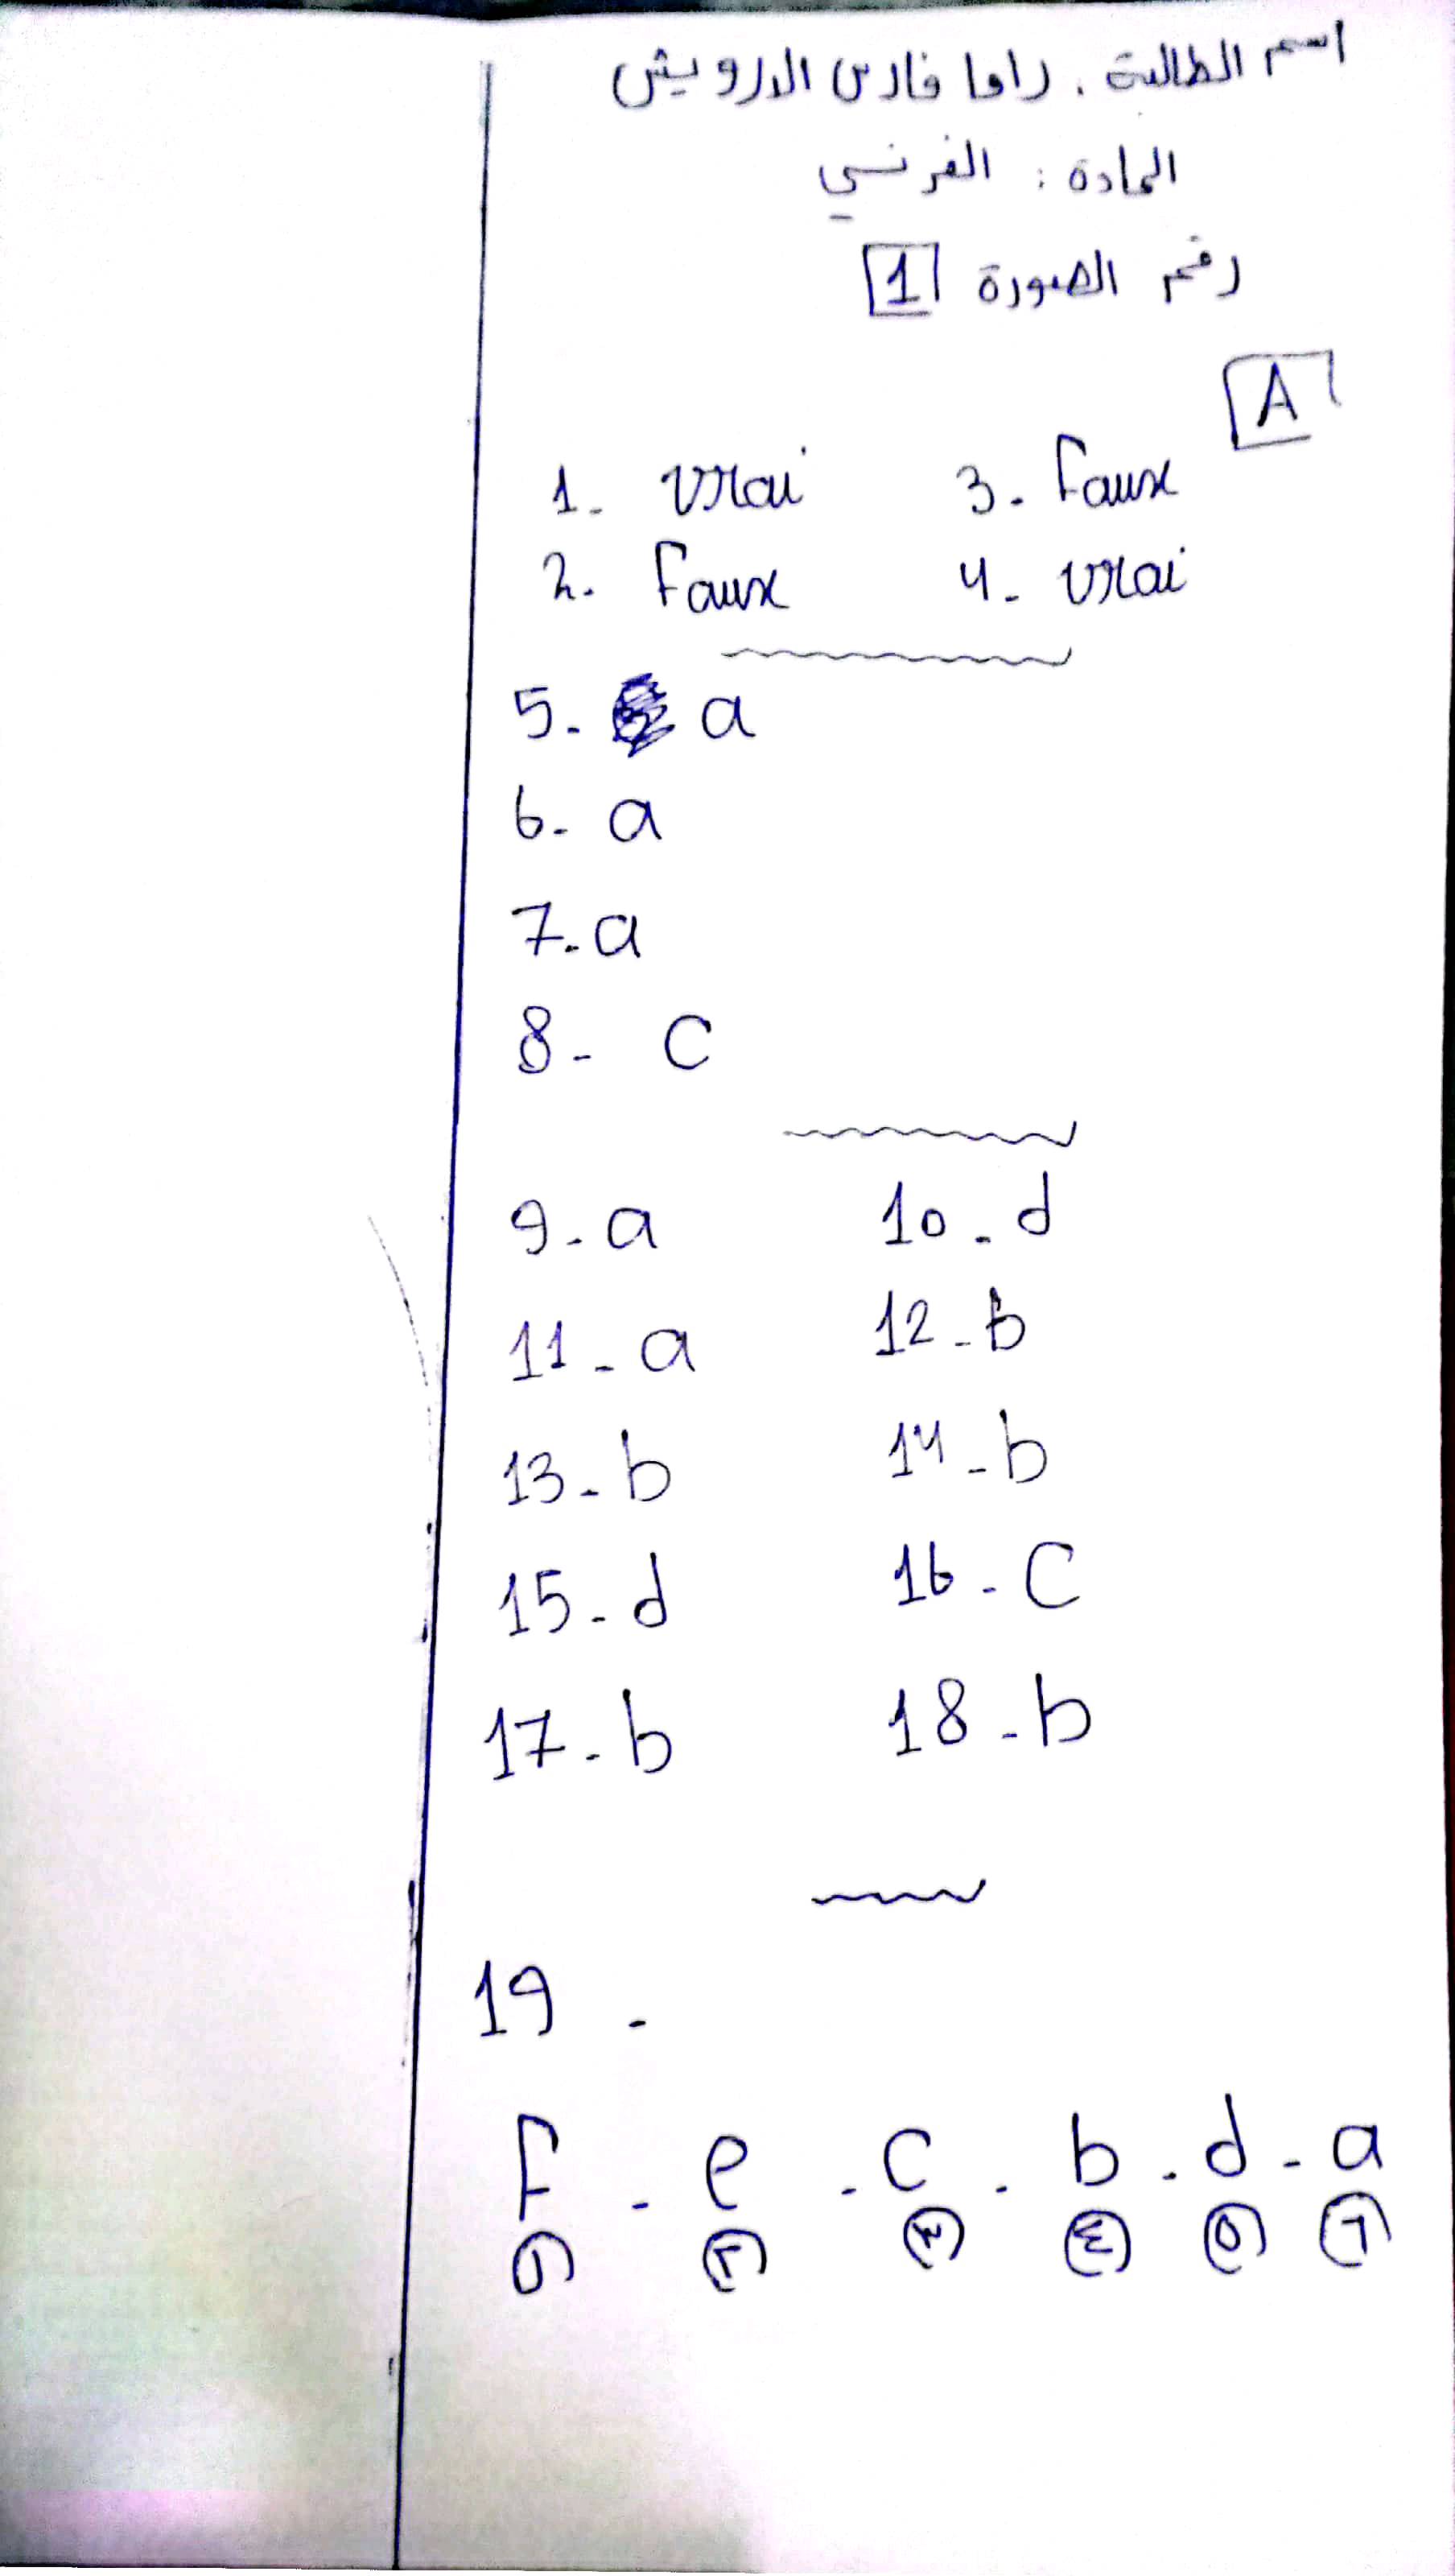 اسم الطالبة . راما فارس الدرويش
المادة : الفرنسي
رقم الصورة 1
A
1. vrai 3. Faux
2. Faux 4. vrai
5. a
6. a
7. a
8. c
9. a 10. d
11. a 12. b
13. b 14. b
15. d 16. C
17. b 18. b
19.
F - e - c - b - d - a